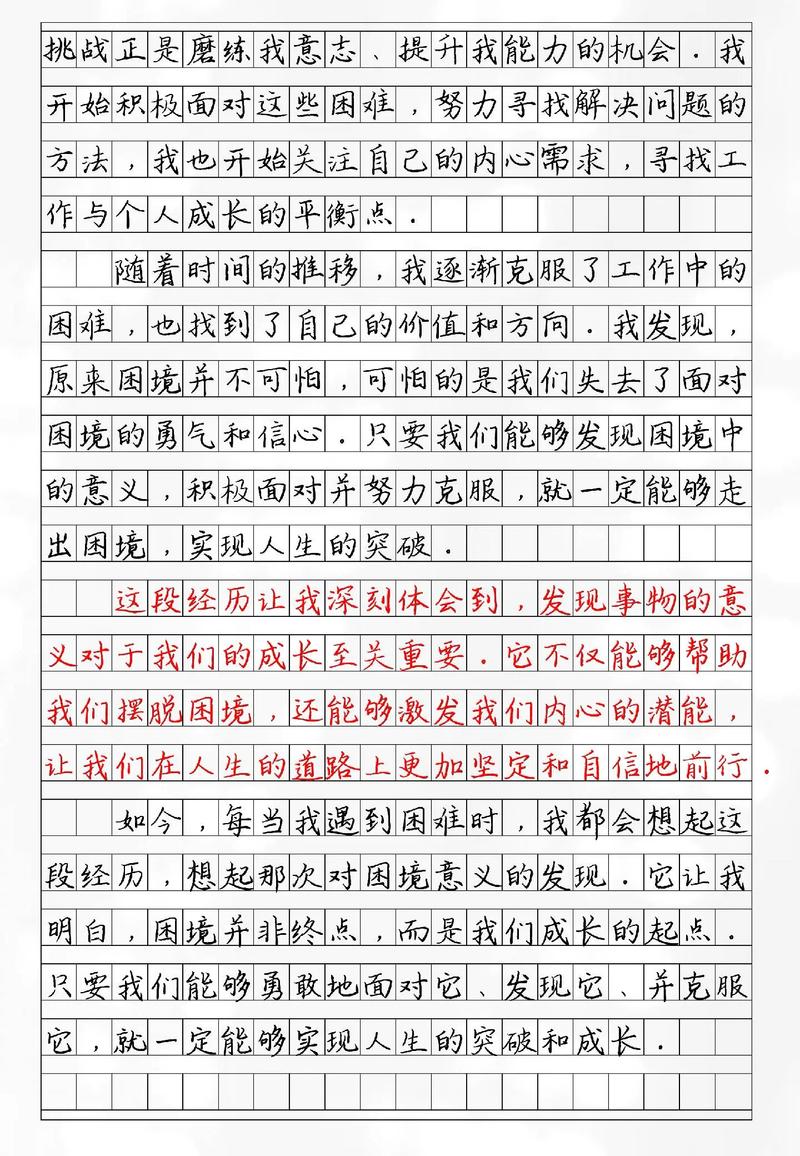 挑战正是磨练我意志、提升我能力的机会．我
开始积极面对这些困难，努力寻找解决问题的
方法，我也开始关注自己的内心需求，寻找工
作与个人成长的平衡点．
随着时间的推移，我逐渐克服了工作中的
困难，也找到了自己的价值和方向．我发现，
原来困境并不可怕，可怕的是我们失去了面对
困境的勇气和信心．只要我们能够发现困境中
的意义，积极面对并努力克服，就一定能够走
出困境，实现人生的突破．
这段经历让我深刻体会到，发现事物的意
义对于我们的成长至关重要．它不仅能够帮助
我们摆脱困境，还能够激发我们内心的潜能，
让我们在人生的道路上更加坚定和自信地前行．
如今，每当我遇到困难时，我都会想起这
段经历，想起那次对困境意义的发现．它让我
明白，困境并非终点，而是我们成长的起点．
只要我们能够勇敢地面对它、发现它、并克服
它，就一定能够实现人生的突破和成长．